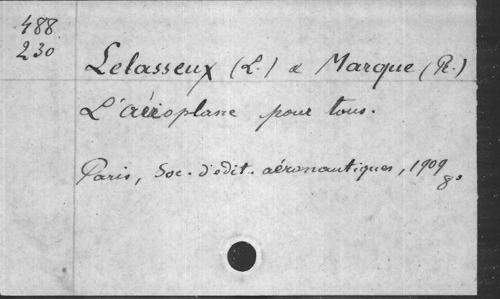 488
230
Lelasseux (L.) & Marque (R.)
L'aéroplane pour tous.
Paris, Soc. d'édit. aéronautiques, 1909
8º